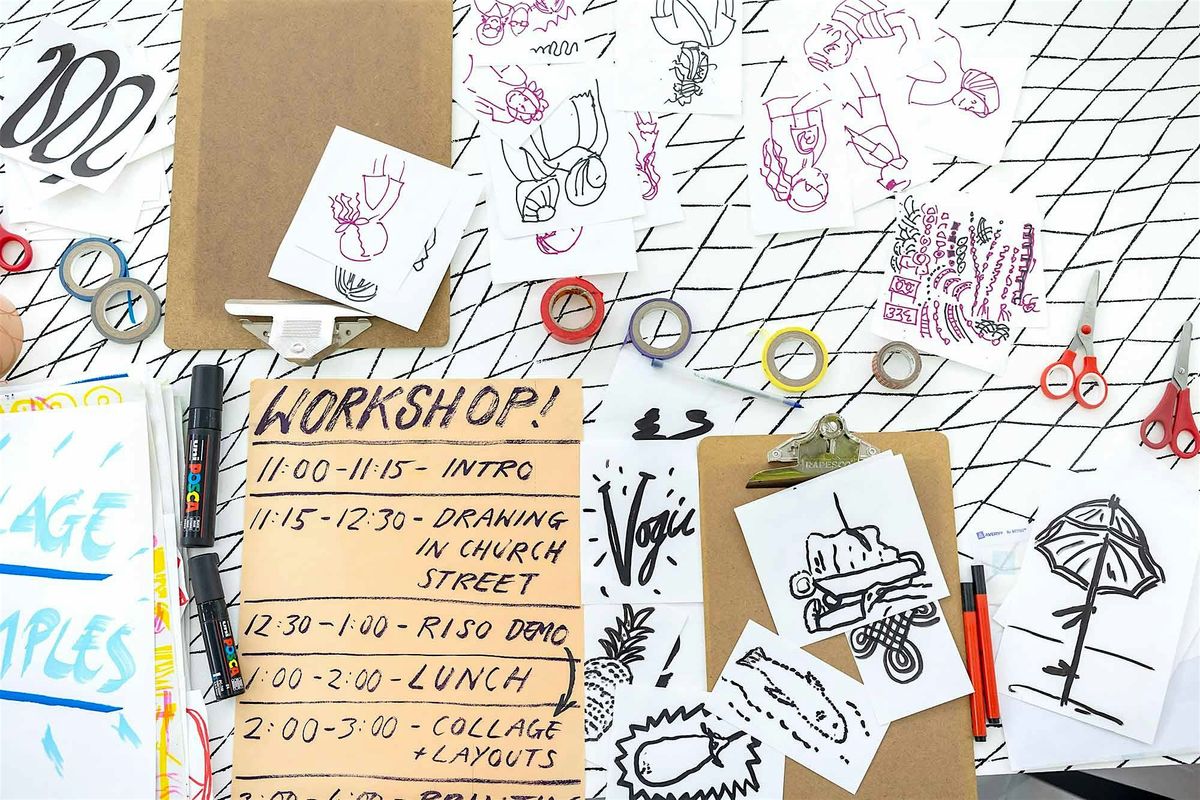 WORKSHOP!
11:00-11:15- INTRO
11:15-12:30- DRAWING
IN CHURCH
STREET
12:30-1:00- RISO DEMO
1:00-2:00-LUNCH
2:00-3:00-COLLAGE
+LAYOUTS
LAGE
MPLES
uni POSCA
uni POSCA
Vogue
RAPESCO
AVERY